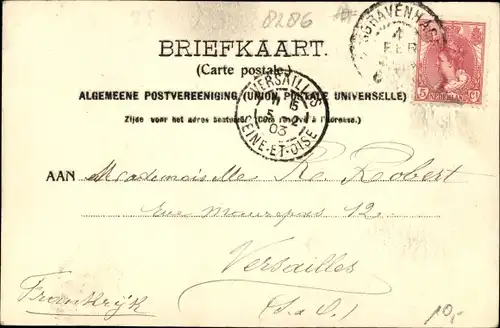 8286
BRIEFKAART.
(Carte postale.)
ALGEMEENE POSTVEREENIGING (UNION POSTALE UNIVERSELLE)
Zijde voor het adres bestemd. (Côté réservé à l'adresse.)
'S GRAVENHAGE
4
FEB
VERSAILLES
15
5 - 2
03
SEINE-ET-OISE
5 NEDERLAND CT
AAN Mademoiselle R. Robert
Rue Maurepas 12.
Versailles
(S. & O.)
Frankrijk
10,-